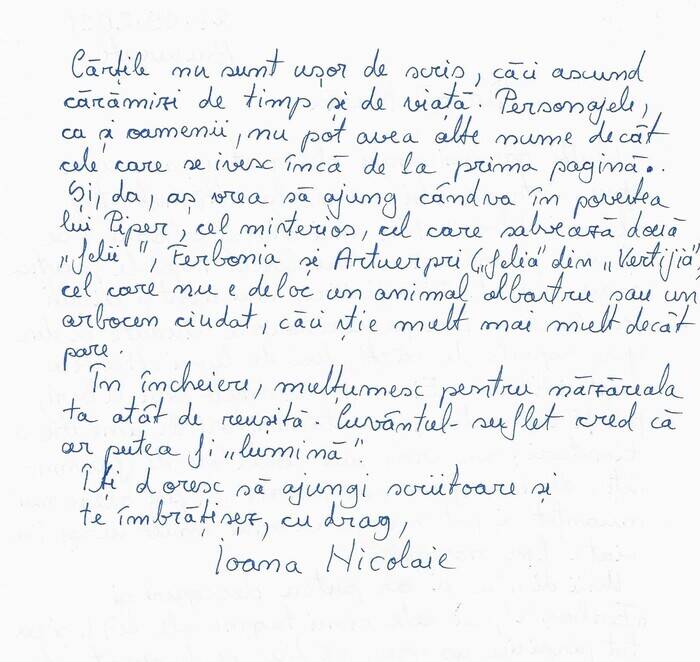 Cărțile nu sunt ușor de scris, căci ascund
cărămizi de timp și de viață. Personajele,
ca și oamenii, nu pot avea alte nume decât
cele care se ivesc încă de la prima pagină.
Și, da, aș vrea să ajung cândva în povestea
lui Piper, cel misterios, cel care salvează două
„felii", Ferbonia și Artuerpri („felia" din „Vertijia",
cel care nu e deloc un animal albastru sau un
arbocen ciudat, căci știe mult mai mult decât
pare.
În încheiere, mulțumesc pentru năzăreala
ta atât de reușită. Cuvântul-suflet cred că
ar putea fi „lumină"
Îți doresc să ajungi scriitoare și
te îmbrățișez, cu drag,
Ioana Nicolaie